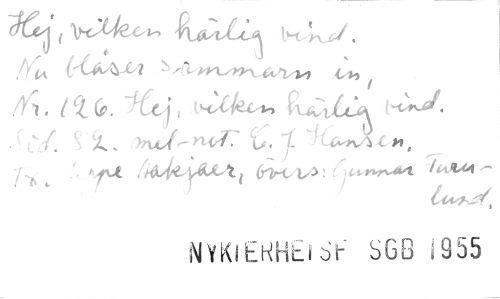 Hej, vilken härlig vind.
Nu blåser sommarn in,
Nr. 126. Hej, vilken härlig vind.
Sid. 82. mel-not. C. J. Hansen,
Tx. Jeppe Aakjaer, övers: Gunnar Turu-
lund.
NYKTERHETSF SGB 1955